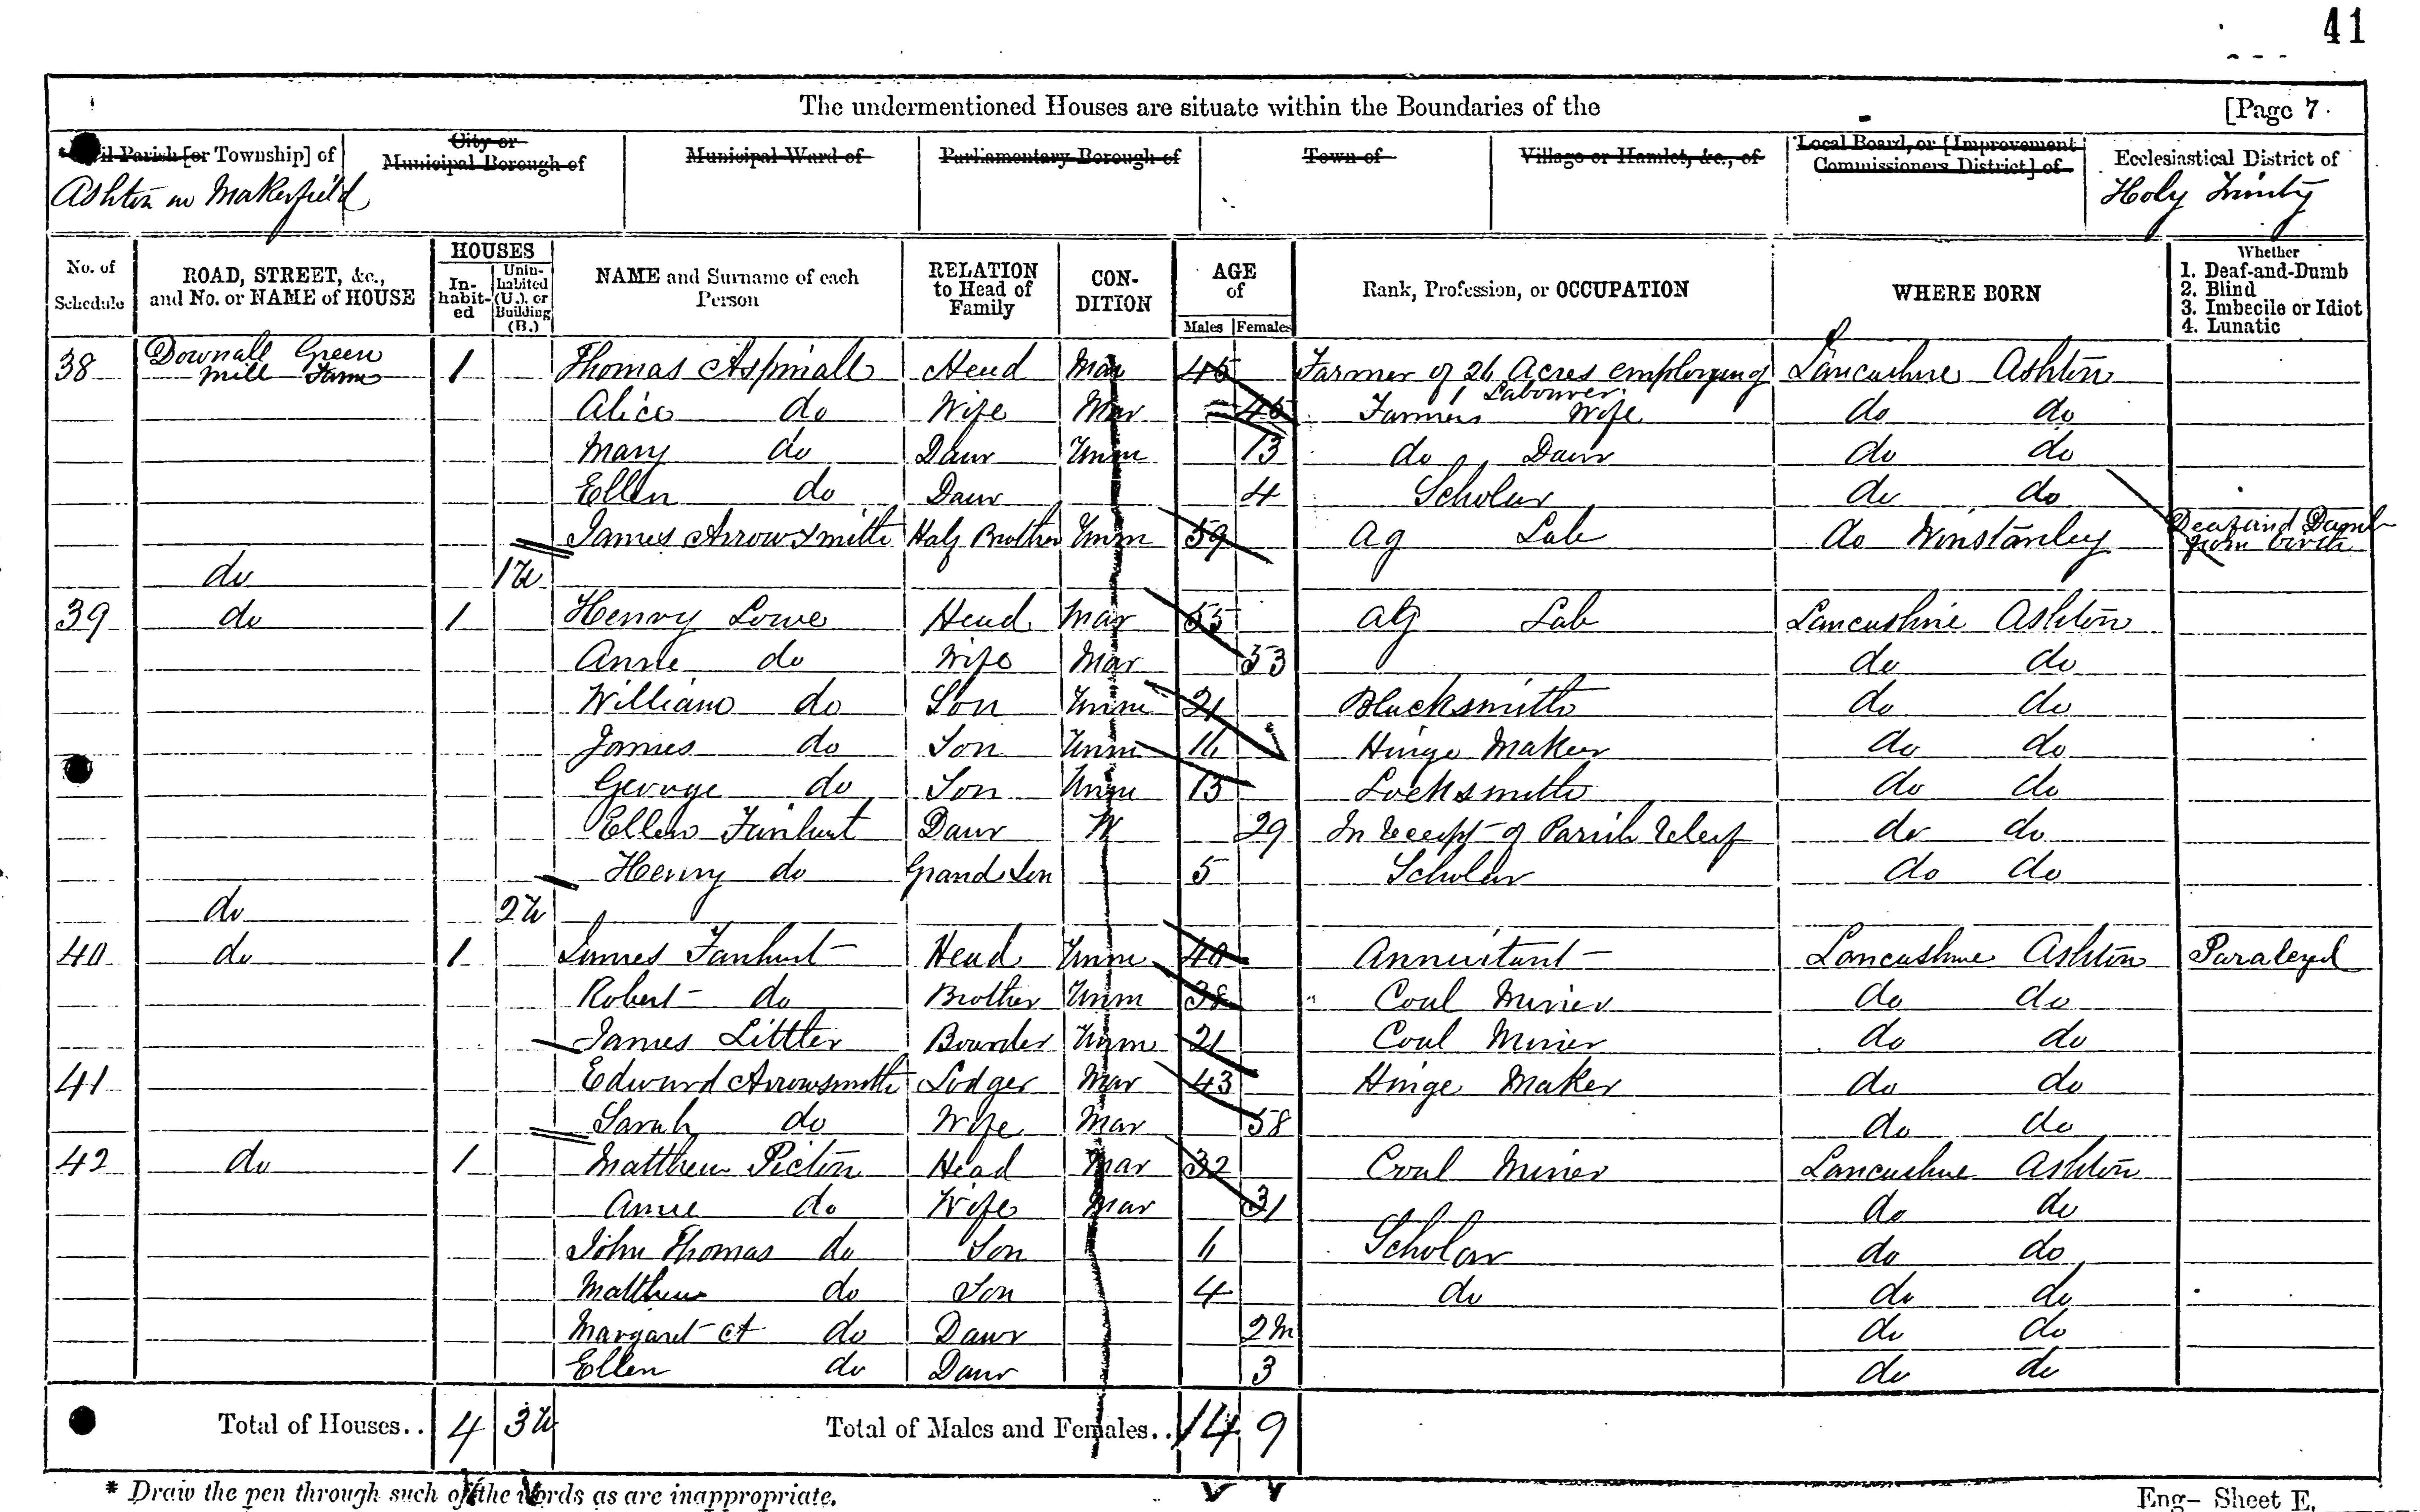 41
The undermentioned Houses are situate within the Boundaries of the [Page 7.
il Parish [or Township] of City or Municipal Borough of Municipal Ward of Parliamentary Borough of Town of Village or Hamlet, &c., of Local Board, or [Improvement Commissioners District] of Ecclesiastical District of
Ashton in Makerfield Holy Trinity
No. of Schedule ROAD, STREET, &c., and No. or NAME of HOUSE HOUSES Inhabited Uninhabited (U.), or Building (B.) NAME and Surname of each Person RELATION to Head of Family CONDITION AGE of Males Females Rank, Profession, or OCCUPATION WHERE BORN Whether 1. Deaf-and-Dumb 2. Blind 3. Imbecile or Idiot 4. Lunatic
38 Downall Green Mill Farm 1 Thomas Aspinall Head Mar 45 Farmer of 26 Acres employing 1 Labourer Lancashire Ashton
Alice do Wife Mar 45 Farmers Wife do do
Mary do Daur Unm 13 do Daur do do
Ellen do Daur 4 Scholar do do
James Arrowsmith Half Brother Unm 59 Ag Lab do Winstanley Deaf and Dumb from birth
do 1U
39 do 1 Henry Lowe Head Mar 55 Ag Lab Lancashire Ashton
Anne do Wife Mar 53 do do
William do Son Unm 21 Blacksmith do do
James do Son Unm 16 Hinge Maker do do
George do Son Unm 13 Locksmith do do
Ellen Fairhurst Daur W 29 In receipt of Parish Releif do do
Henry do Grand Son 5 Scholar do do
do 2U
40 do 1 James Fairhurst Head Unm 40 Annuitant Lancashire Ashton Paralezed
Robert do Brother Unm 38 Coal Minier do do
James Littler Boarder Unm 21 Coal Minier do do
41 Edward Arrowsmith Lodger Mar 43 Hinge Maker do do
Sarah do Wife Mar 58 do do
42 do 1 Matthew Picton Head Mar 32 Coal Minier Lancashire Ashton
Anne do Wife Mar 31 do do
John Thomas do Son 6 Scholar do do
Matthew do Son 4 do do do
Margaret A do Daur 2m do do
Ellen do Daur 3 do do
Total of Houses.. 4 3U Total of Males and Females.. 14 9
* Draw the pen through such of the words as are inappropriate.
Eng- Sheet E.